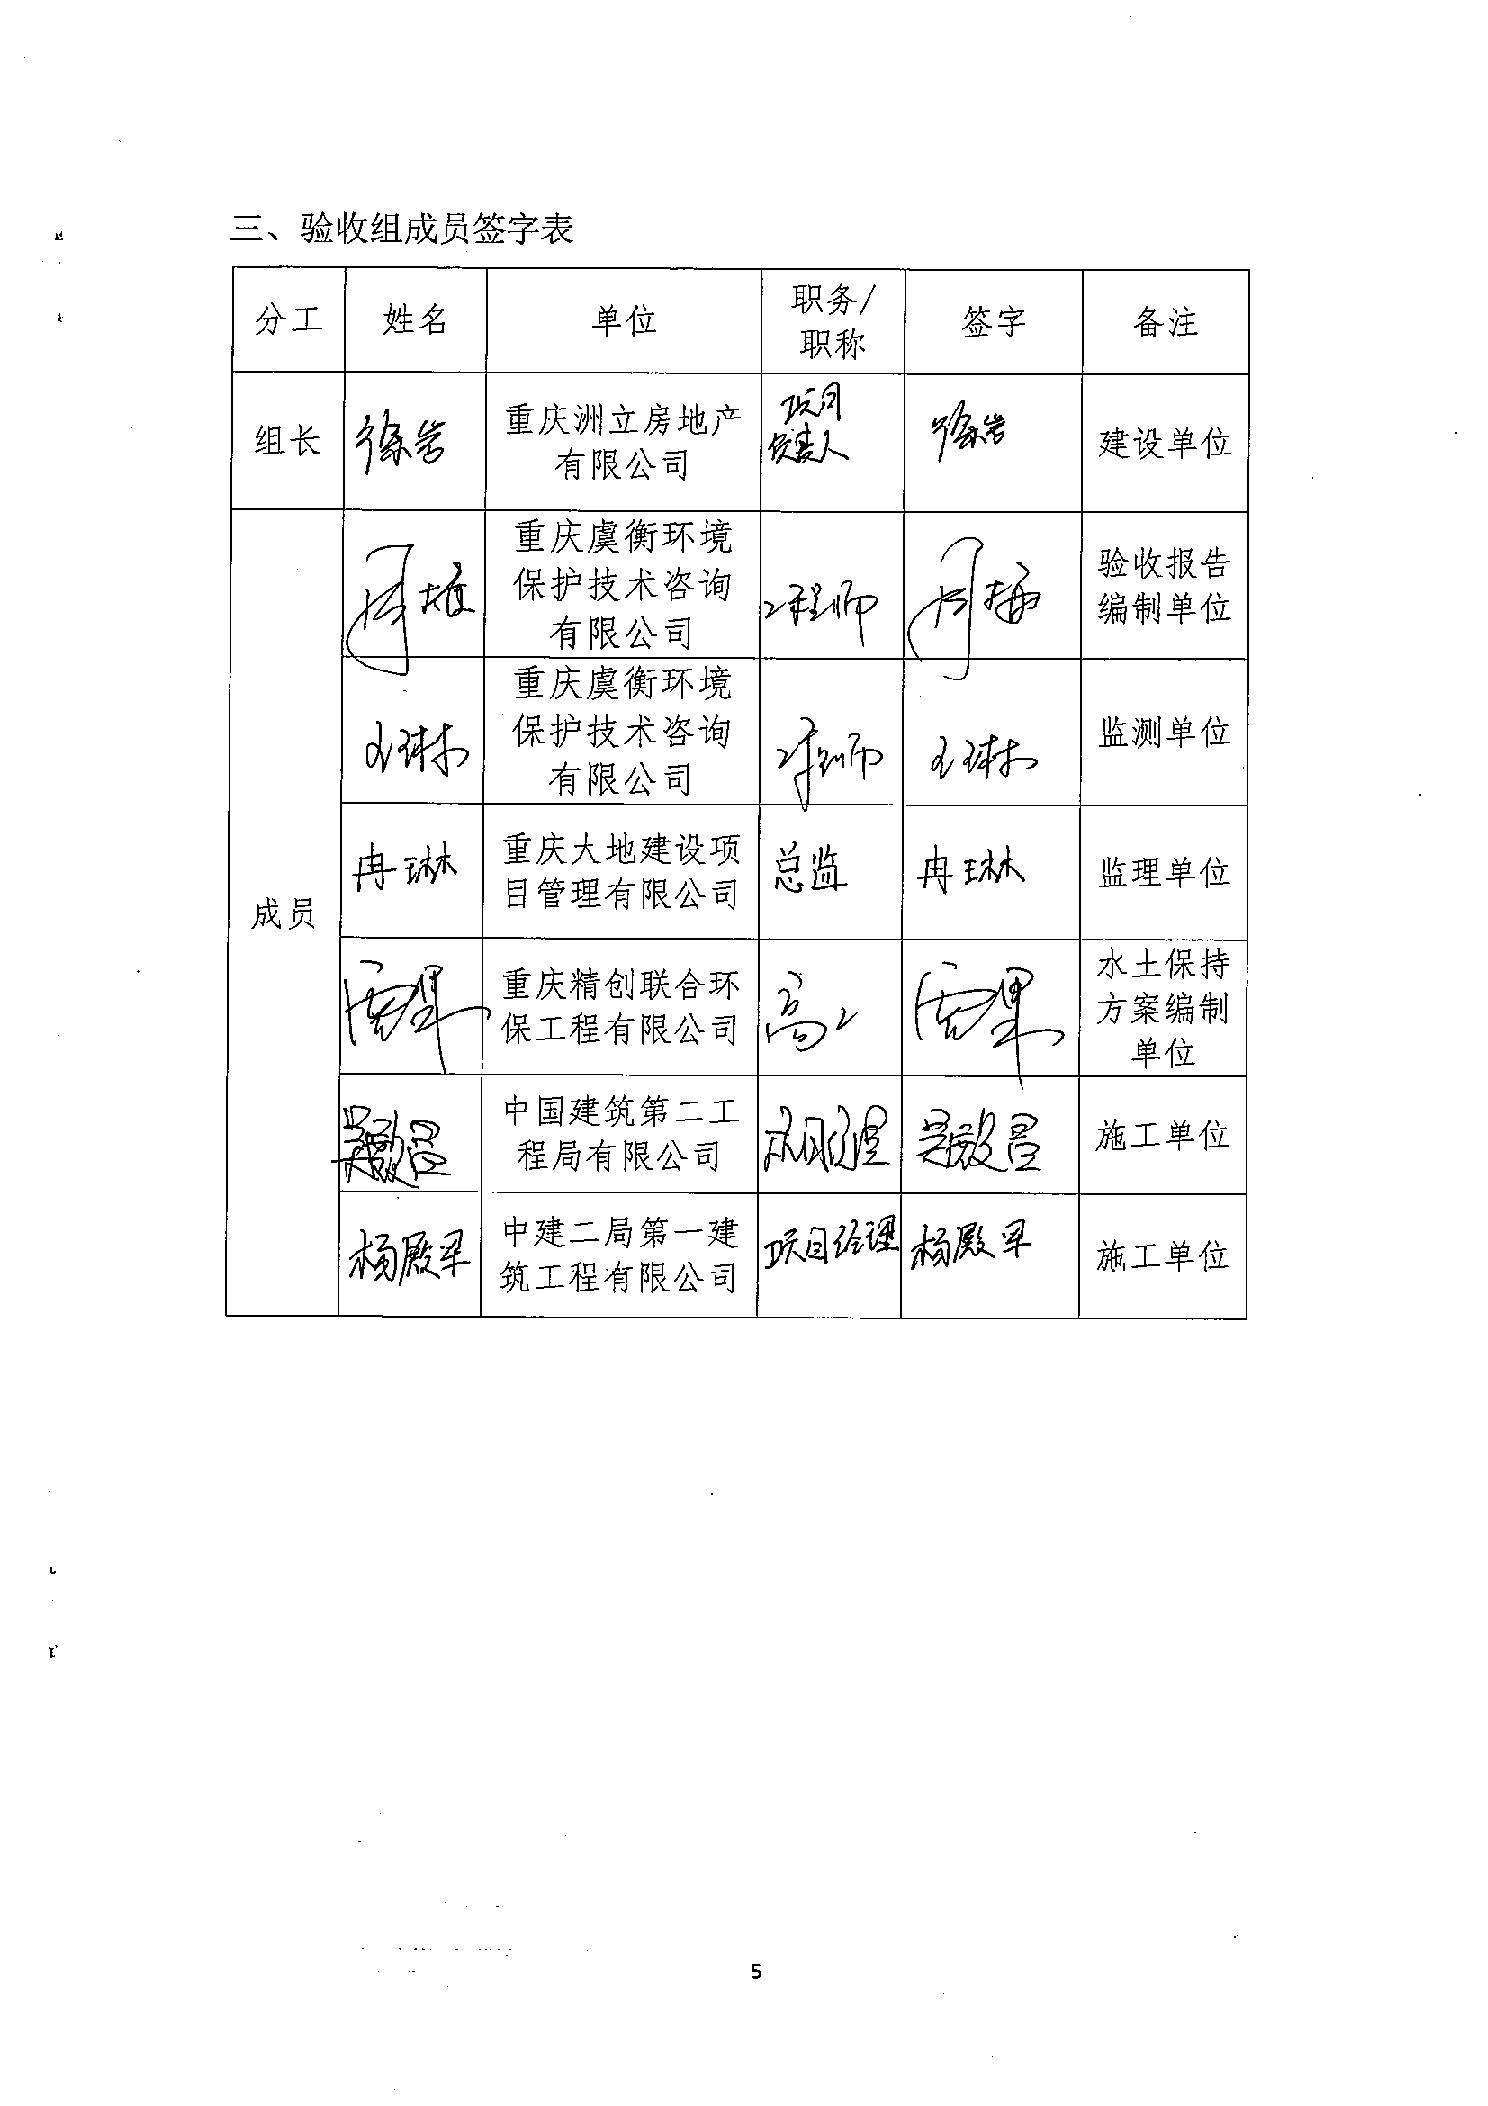 三、验收组成员签字表
分工 姓名 单位 职务/
职称 签字 备注
组长 徐岩 重庆洲立房地产
有限公司 项目
负责人 徐岩 建设单位
成员
周梅 重庆虞衡环境
保护技术咨询
有限公司 工程师 周梅 验收报告
编制单位
王琳杰 重庆虞衡环境
保护技术咨询
有限公司 工程师 王琳杰 监测单位
冉琳 重庆大地建设项
目管理有限公司 总监 冉琳 监理单位
重庆精创联合环
保工程有限公司 高工 水土保持
方案编制
单位
吴殿昌 中国建筑第二工
程局有限公司 项目经理 吴殿昌 施工单位
杨殿军 中建二局第一建
筑工程有限公司 项目经理 杨殿军 施工单位
5